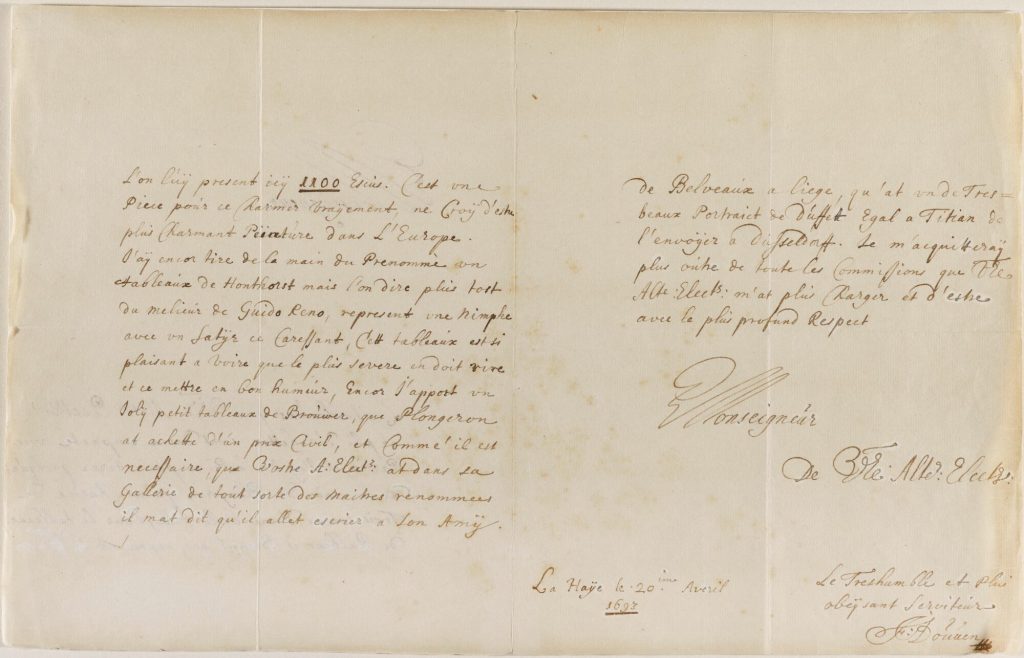 L'on l'uÿ present icÿ 1100 Escus. C'est une
Piece pour ce Charmer Vrayement, ne Croÿ d'estre
plus Charmant Peinture dans L'Europe.
J'aÿ encor tire de la main du Prenommè un
tableaux de Honthorst mais l'on dire plus tost
du melieur de Guido Reno, represent une Nimphe
avec un Satÿr ce Caressant, Cett tableaux est si
plaisant a Voire que le plus severe en doit rire
et ce mettre en bon humeur, Encor J'apport un
Jolÿ petit tableaux de Brouwer, que Plongeron
at achette d'un prix Civil, et Comme il est
necessaire, que Vostre A: Elect: at dans sa
Gallerie de tout sorte des Maitres renommees
il mat dit qu'il allet escrier a son Amÿ
de Belveaux a Liege, qu'at un de Tres=
beaux Portraict de Duffet Egal a Titian de
l'envoÿer a Dusseldorff. Je m'acquitteraÿ
plus outre de toute les Commissions que Vre
Alte: Elect: m'at plus Charger et d'estre
avec le plus profund Respect
Monseigneur
De Vre: Alte: Elect:
La Haÿe le 20: ième Averil
1697
Le Treshumble et Plus
obeÿsant Serviteur
F: Douven